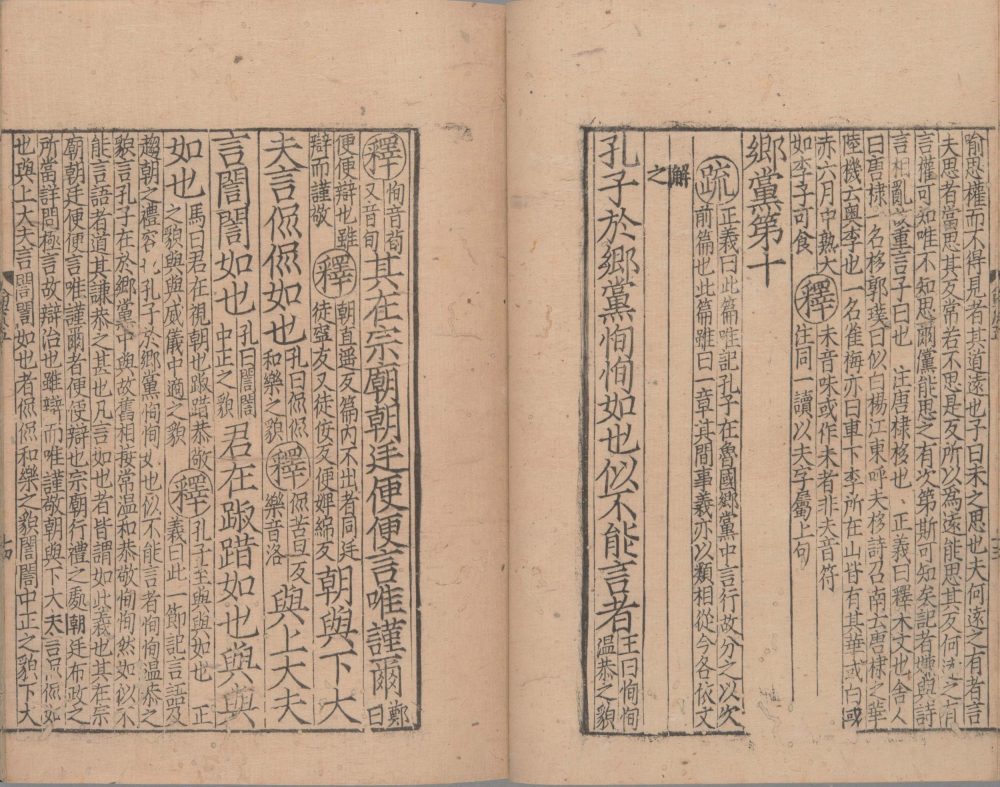 喻思權而不得見者其道遠也子曰未之思也夫何遠之有者言
夫思者當思其反常若不思是反所以為遠能思其反何遠之有
言權可知唯不知思爾儻能思之有次第斯可知矣記者嫌與詩
言相亂故重言子曰也 注唐棣栘也 正義曰釋木文也舍人
曰唐棣一名栘郭璞曰似白楊江東呼夫栘詩召南云唐棣之華
陸機云奧李也一名雀梅亦曰車下李所在山皆有其華或白或
赤六月中熟大如李子可食 釋 未音味或作末者非夫音符注同一讀以夫字屬上句
鄉黨第十
疏 正義曰此篇唯記孔子在魯國鄉黨中言行故分之以次
前篇也此篇雖曰一章其間事義亦以類相從今各依文
解之
孔子於鄉黨恂恂如也似不能言者 王曰恂恂溫恭之貌
釋 恂音荀又音旬 其在宗廟朝廷便便言唯謹爾 鄭曰
便便辯也雖辯而謹敬 釋 朝直遙反篇內不出者同廷徒寧反又徒佞反便婢綿反 朝與下大
夫言侃侃如也 孔曰侃侃和樂之貌 釋 侃苦旦反樂音洛 與上大夫
言誾誾如也 孔曰誾誾中正之貌 君在踧踖如也與與
如也 馬曰君在視朝也踧踖恭敬之貌與與威儀中適之貌 釋 孔子至與與如也 正義曰此一節記言語及
趨朝之禮容也孔子於鄉黨恂恂如也似不能言者恂恂溫恭之
貌言孔子在於鄉黨中與故舊相接常溫和恭敬恂恂然如似不
能言語者道其謙恭之甚也凡言如也者皆謂如此義也其在宗
廟朝廷便便言唯謹爾者便便辯也宗廟行禮之處朝廷布政之
所當詳問極言故辯治也雖辯而唯謹敬朝與下大夫言侃侃如
也與上大夫言誾誾如也者侃侃和樂之貌誾誾中正之貌下大